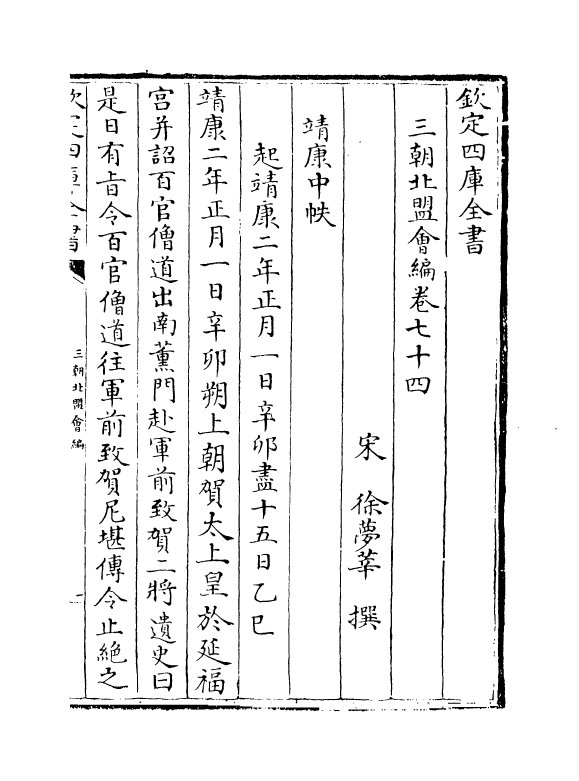 欽定四庫全書
三朝北盟會編卷七十四
宋 徐夢莘 撰
靖康中帙
起靖康二年正月一日辛卯盡十五日乙巳
靖康二年正月一日辛卯朔上朝賀太上皇於延福
宮并詔百官僧道出南薰門赴軍前致賀二將遺史曰
是日有旨令百官僧道往軍前致賀尼堪傳令止絶之
欽定四庫全書
三朝北盟會編
一